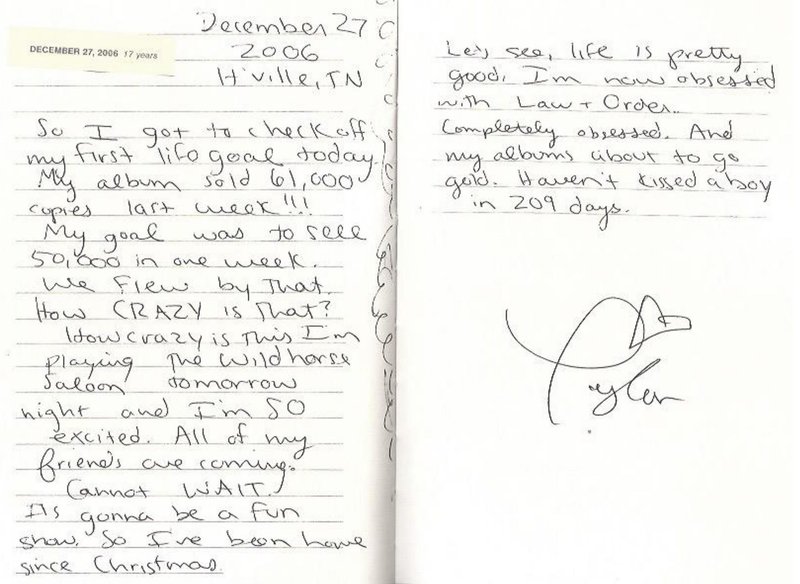 December 27
2006
H'ville, TN
DECEMBER 27, 2006 17 years
So I got to check off
my first life goal today.
My album sold 61,000
copies last week!!!
My goal was to sell
50,000 in one week.
We flew by that.
How CRAZY is that?
How crazy is this I'm
playing the wildhorse
saloon tomorrow
night and I'm SO
excited. All of my
friends are coming.
Cannot WAIT.
It's gonna be a fun
show. So I've been home
since Christmas.
Let's see, life is pretty
good. I'm now obsessed
with Law + Order.
Completely obsessed. And
my albums about to go
gold. Haven't kissed a boy
in 209 days.
Taylor